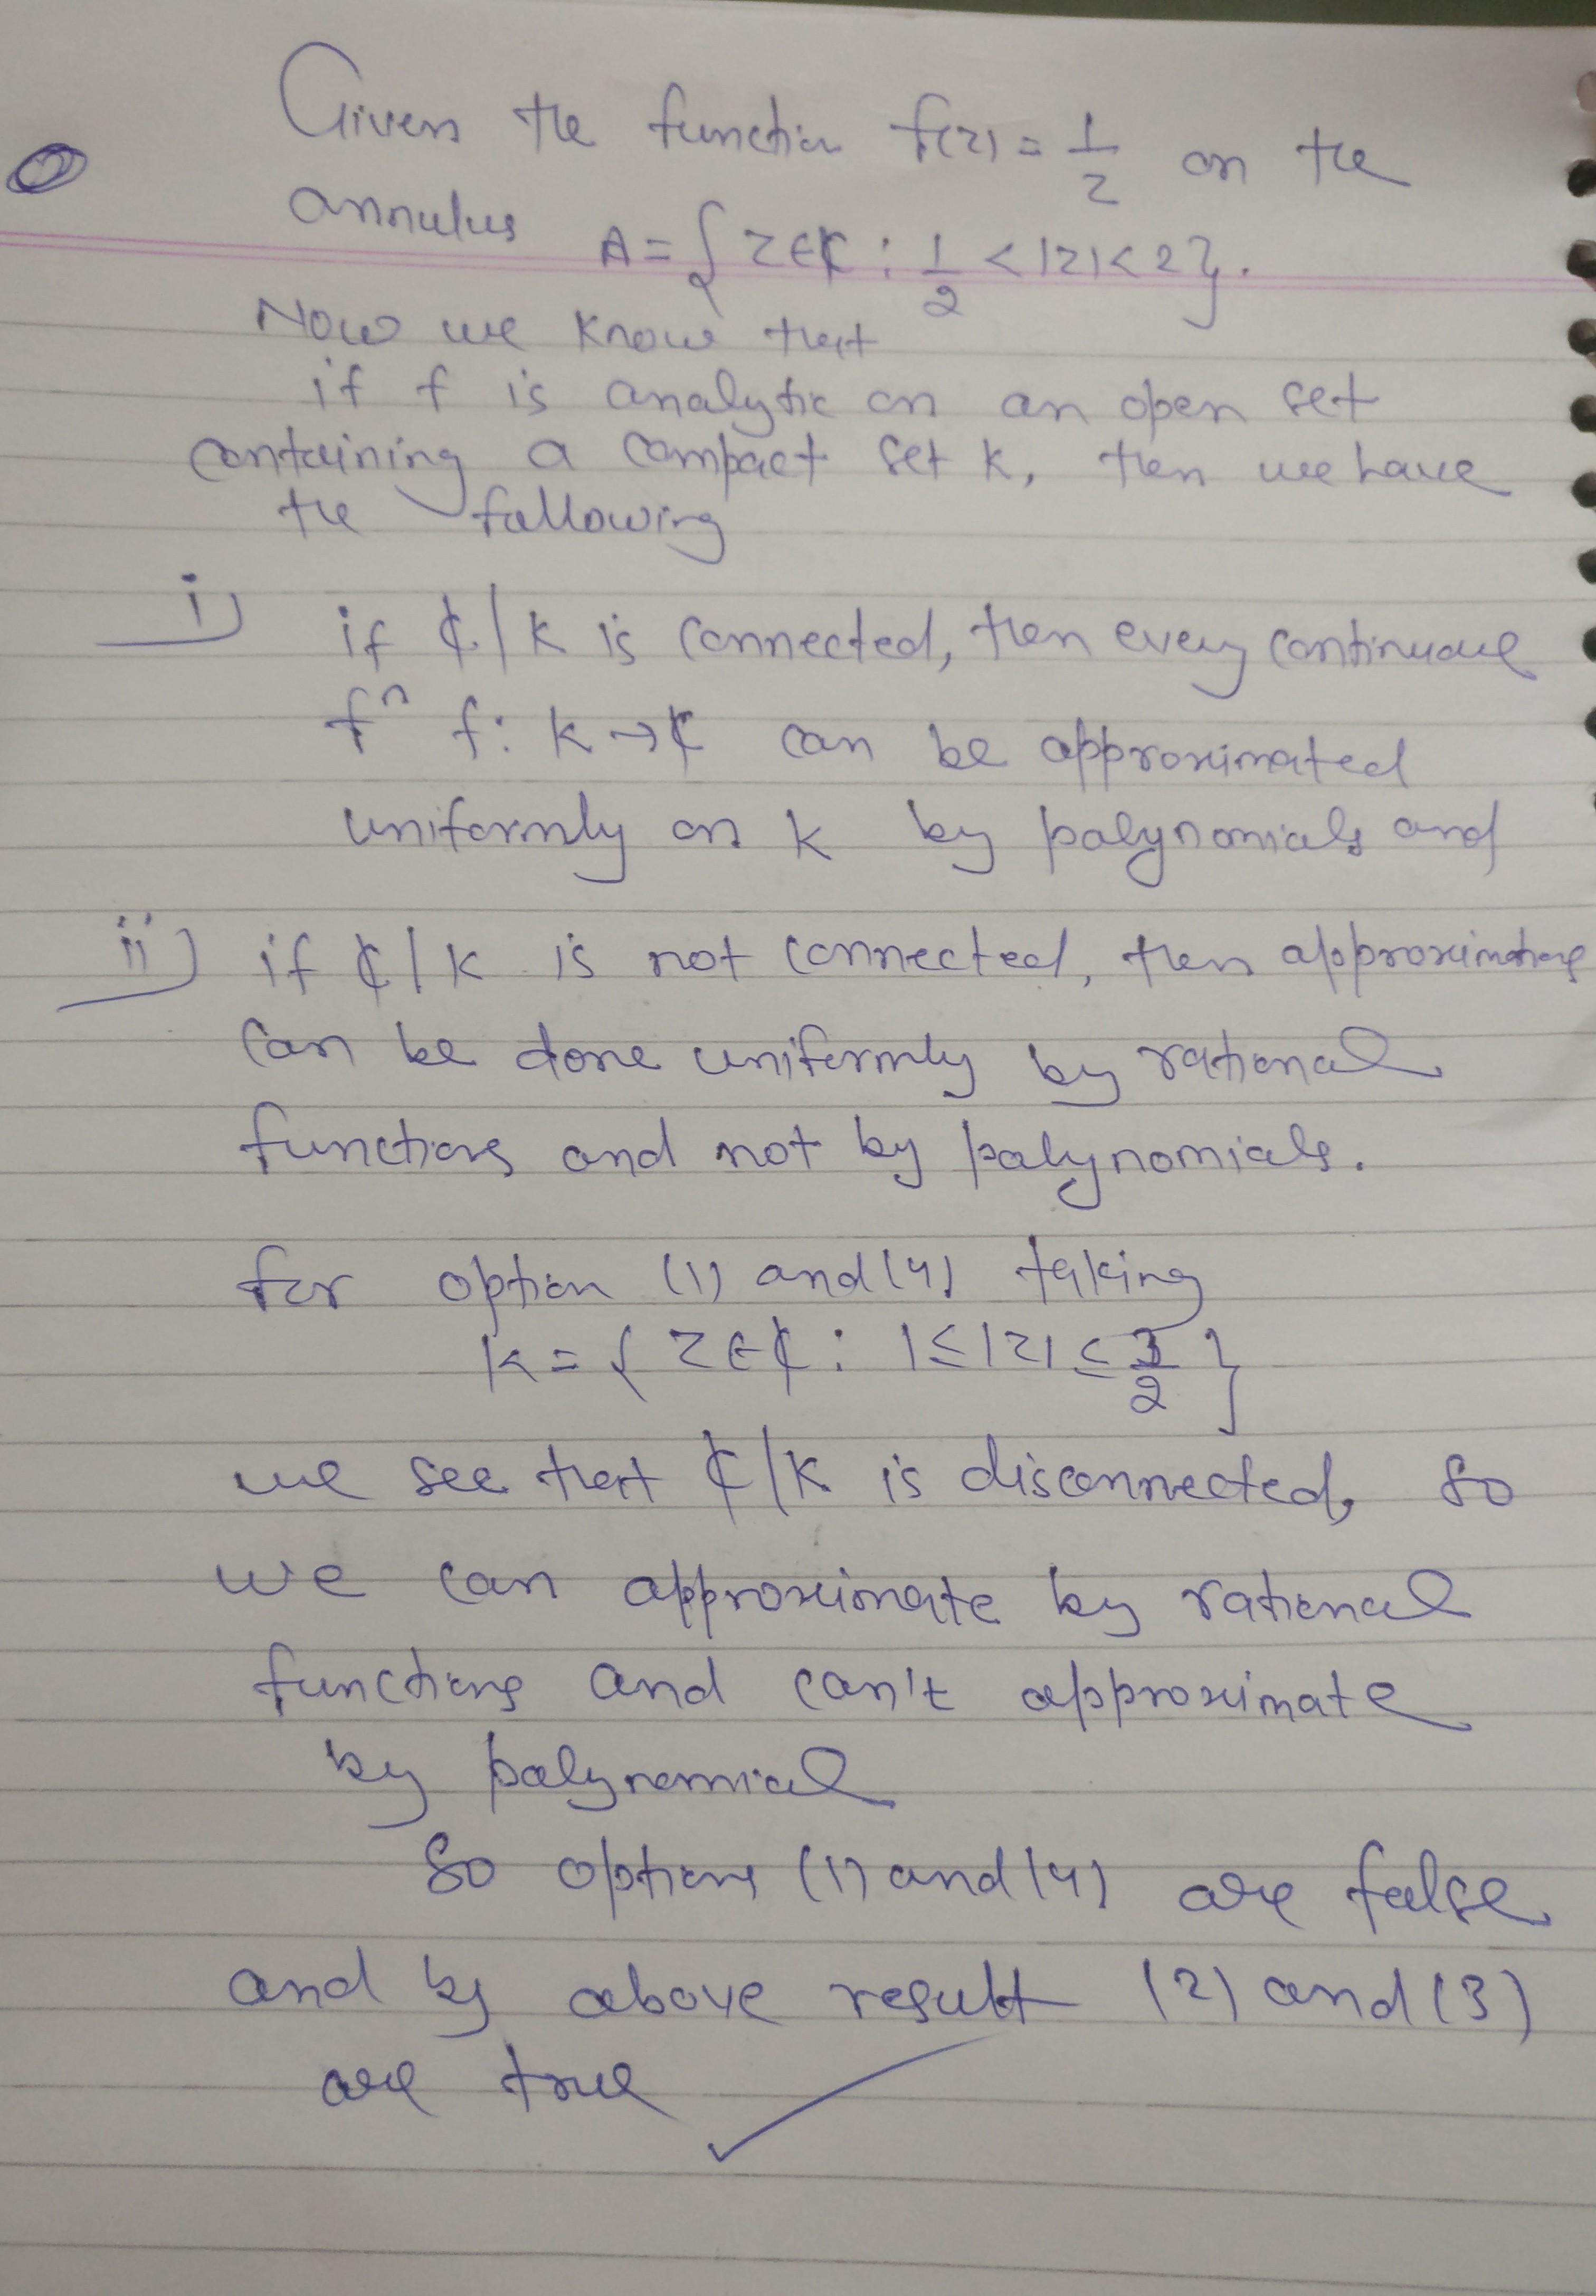 Given the function f(z) = 1/z on the
annulus A = { z ∈ ₵ : 1/2 < |z| < 2 }.
Now we know that
if f is analytic on an open set
containing a compact set K, then we have
the following
i) if ₵/K is connected, then every continuous
fⁿ f: K → ₵ can be approximated
uniformly on K by polynomials and
ii) if ₵/K is not connected, then approximations
can be done uniformly by rational
functions and not by polynomials.
for option (1) and (4) taking
K = { z ∈ ₵ : 1 ≤ |z| ≤ 3/2 }
we see that ₵/K is disconnected, so
we can approximate by rational
functions and can't approximate
by polynomial
So options (1) and (4) are false
and by above result (2) and (3)
are true ✓